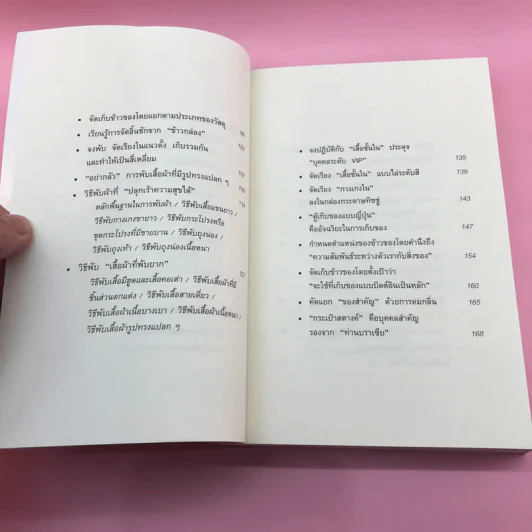 • จัดเก็บข้าวของโดยแยกตามประเภทของวัสดุ
• เรียนรู้การจัดลิ้นชักจาก “ข้าวกล่อง”
• จงพับ จัดเรียงในแนวตั้ง เก็บรวมกัน
และทำให้เป็นสี่เหลี่ยม
• “อย่ากลัว” การพับเสื้อผ้าที่มีรูปทรงแปลก ๆ
• วิธีพับผ้าที่ “ปลุกเร้าความสุขได้”
หลักพื้นฐานในการพับผ้า / วิธีพับเสื้อแขนยาว /
วิธีพับกางเกงขายาว / วิธีพับกระโปรงหรือ
ชุดกระโปรงที่มีชายบาน / วิธีพับถุงน่อง /
วิธีพับถุงเท้า / วิธีพับถุงน่องเนื้อหนา
• วิธีพับ “เสื้อผ้าที่พับยาก”
วิธีพับเสื้อมีฮูดและเสื้อคอเต่า / วิธีพับเสื้อผ้าที่มี
ชิ้นส่วนตกแต่ง / วิธีพับเสื้อสายเดี่ยว /
วิธีพับเสื้อผ้าเนื้อบางเบา / วิธีพับเสื้อผ้าเนื้อหนา /
วิธีพับเสื้อผ้ารูปทรงแปลก ๆ
• จงปฏิบัติกับ “เสื้อชั้นใน” ประดุจ
“บุคคลระดับ VIP” 135
• จัดเรียง “เสื้อชั้นใน” แบบไล่ระดับสี 139
• จัดเรียง “กางเกงใน”
ลงในกล่องกระดาษทิชชู่ 143
• “ตู้เก็บของแบบญี่ปุ่น”
คืออัจฉริยะในการเก็บของ 147
• กำหนดตำแหน่งของข้าวของโดยคำนึงถึง
“ความสัมพันธ์ระหว่างตัวเรากับสิ่งของ” 154
• จัดเก็บข้าวของโดยตั้งเป้าว่า
“จะใช้ที่เก็บของแบบบิลต์อินเป็นหลัก” 160
• คัดแยก “ของสำคัญ” ด้วยการดมกลิ่น 165
• “กระเป๋าสตางค์” คือบุคคลสำคัญ
รองจาก “ท่านบราเซีย” 168